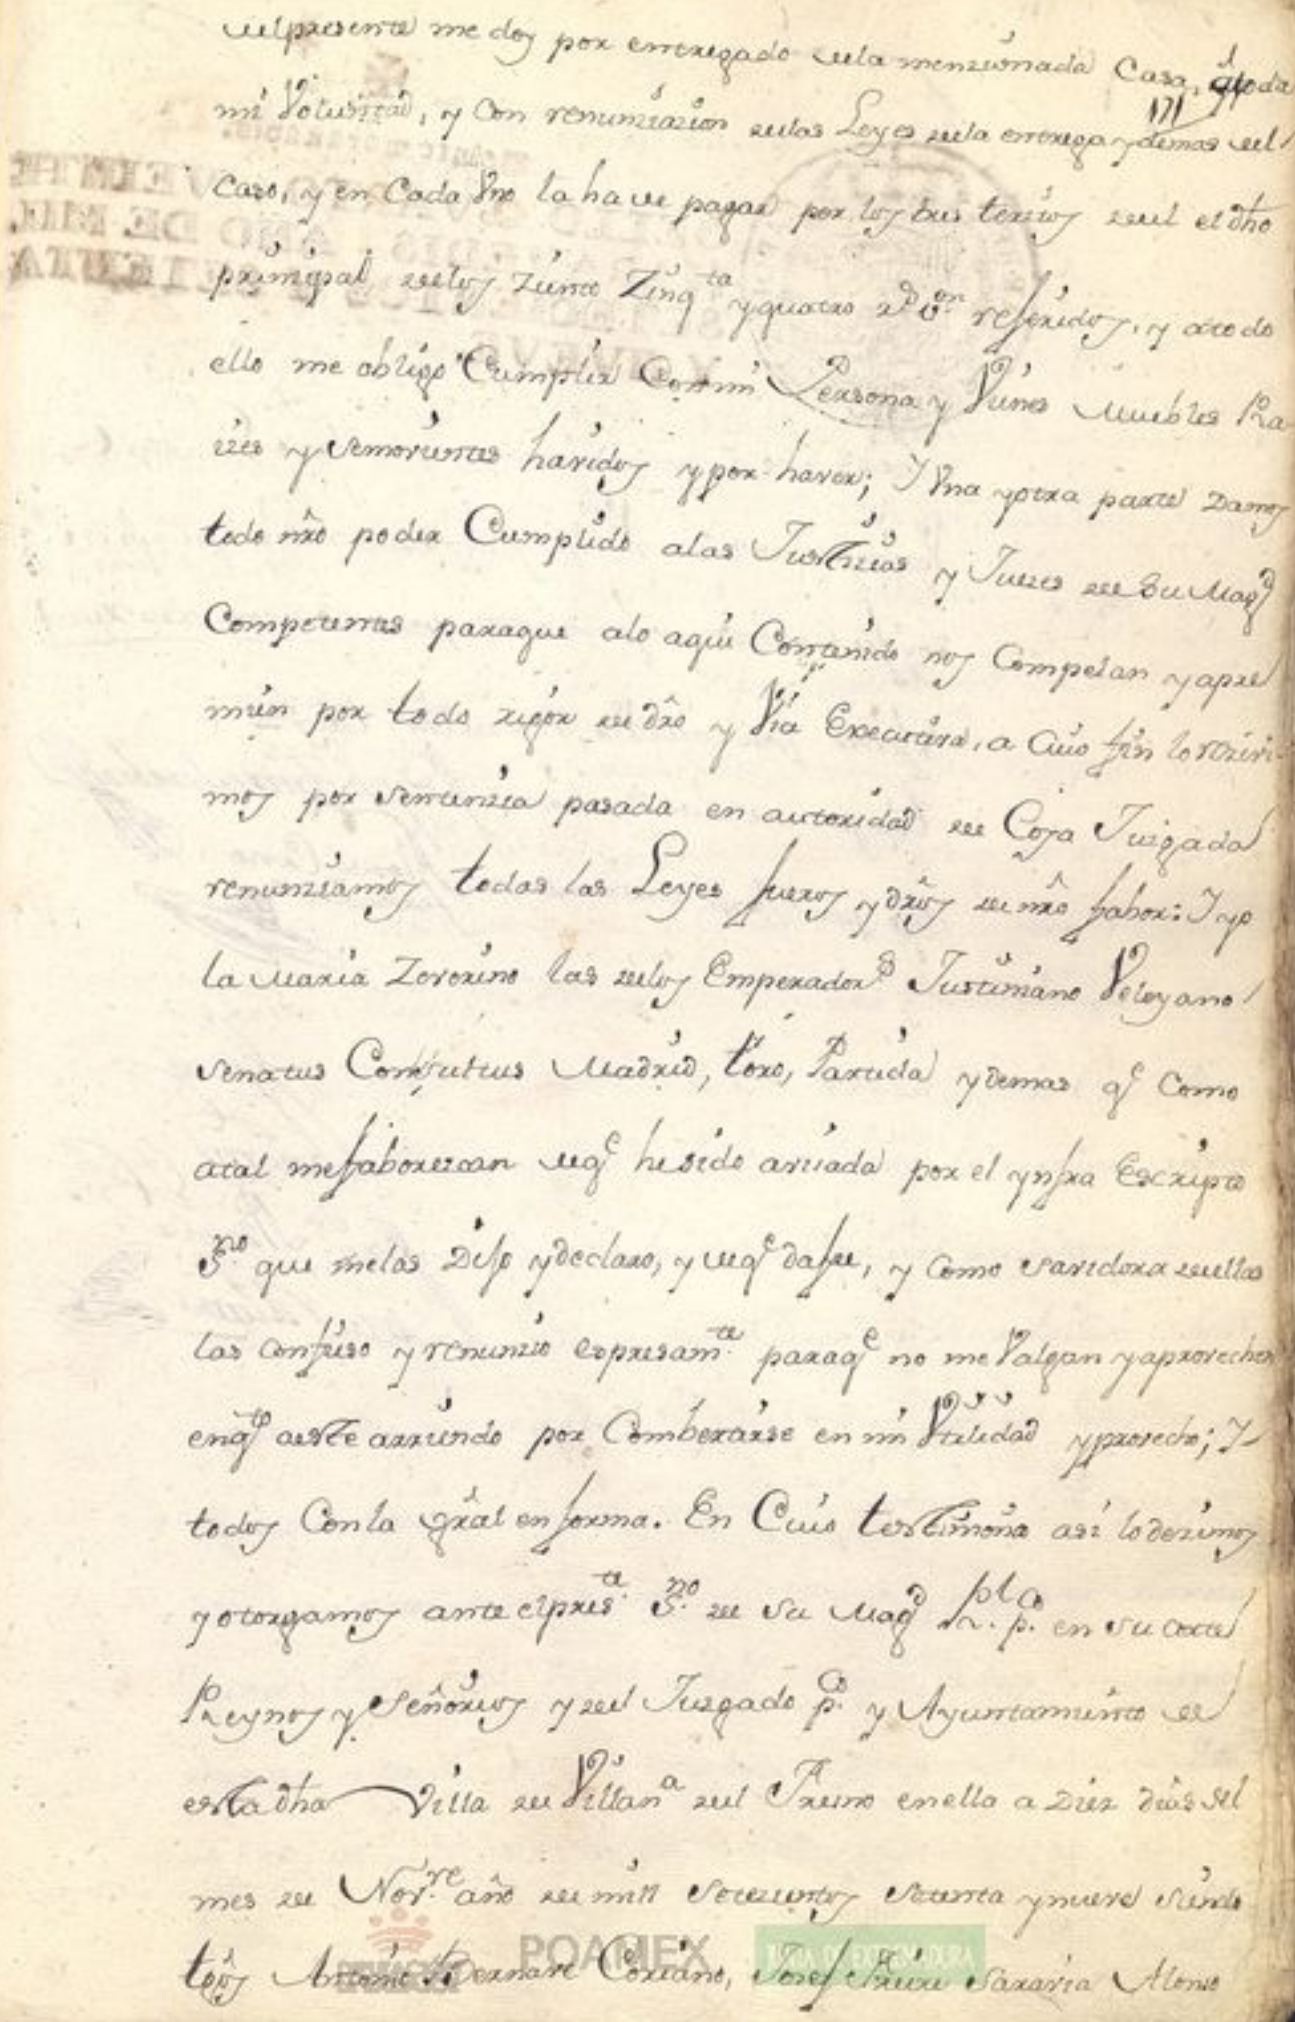 del presente me doy por entregado de la menzionada Casa, a toda
171
mi Voluntad, y Con renunziazion de las Leyes de la entrega y demas del
Caso, y en Cada Vno la ha de pagar por los tus terzios de el dho
prinzipal de los Ziento Zinqta y quatro rs von referidos, y a todo
ello me obligo Cumplir Con mi Persona y Vienes Muebles Ra
izes y Semovientes havidos y por haver; Y Vna y otra parte Damos
todo nro poder Cumplido a las Justizias y Juezes de Su Magd
Competentes para que a lo aqui Contenido nos Compelan y apre
mien por todo rigor de dro y Via Executiva, a Cuio fin lo rezivi-
mos por Sentenzia pasada en autoridad de Cosa Juzgada
renunziamos todas las Leyes fueros y dros de nro fabor: Y yo
la Maria Zeverino las de los Emperadors Justiniano Veleyano
Senatus Consultus Madrid, toro, Partida y demas qe Como
a tal me faborezcan de qe he sido avisada por el ynfra Escripto
Sno que me las Dijo y declaro, y de qe da fee, y Como Savidora de ellas
las confieso y renunzio espresamte para qe no me Valgan y aprovechen
en qto a este arriendo por Comberтirse en mi Vtilidad y provecho; Y
todos Con la gral en forma. En Cuio testimonio asi lo dezimos
y otorgamos ante el preste Sno de Su Magd pco en su corte
Reynos y Señorios y del Juzgado pco y Ayuntamiento de
esta dha Villa de Villana del Fresno en ella a Diez dias del
mes de Novre año de mill Setezientos Setenta y nueve siendo
tgos Antonio Bernave Coriano, Josef Saravia Alonso
POAMEX JUNTA DE EXTREMADURA